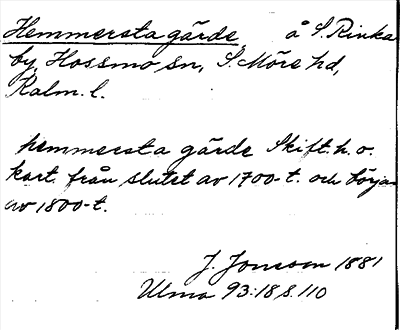 Hemmersta gärde å S. Rinka
by, Hossmo sn, S. Möre hd,
Kalm. l.
hemmersta gärde Skift.h. o.
kart. från slutet av 1700-t. och börja
av 1800-t.
J. Jonsson 1881
Ulma 93:18 s. 110